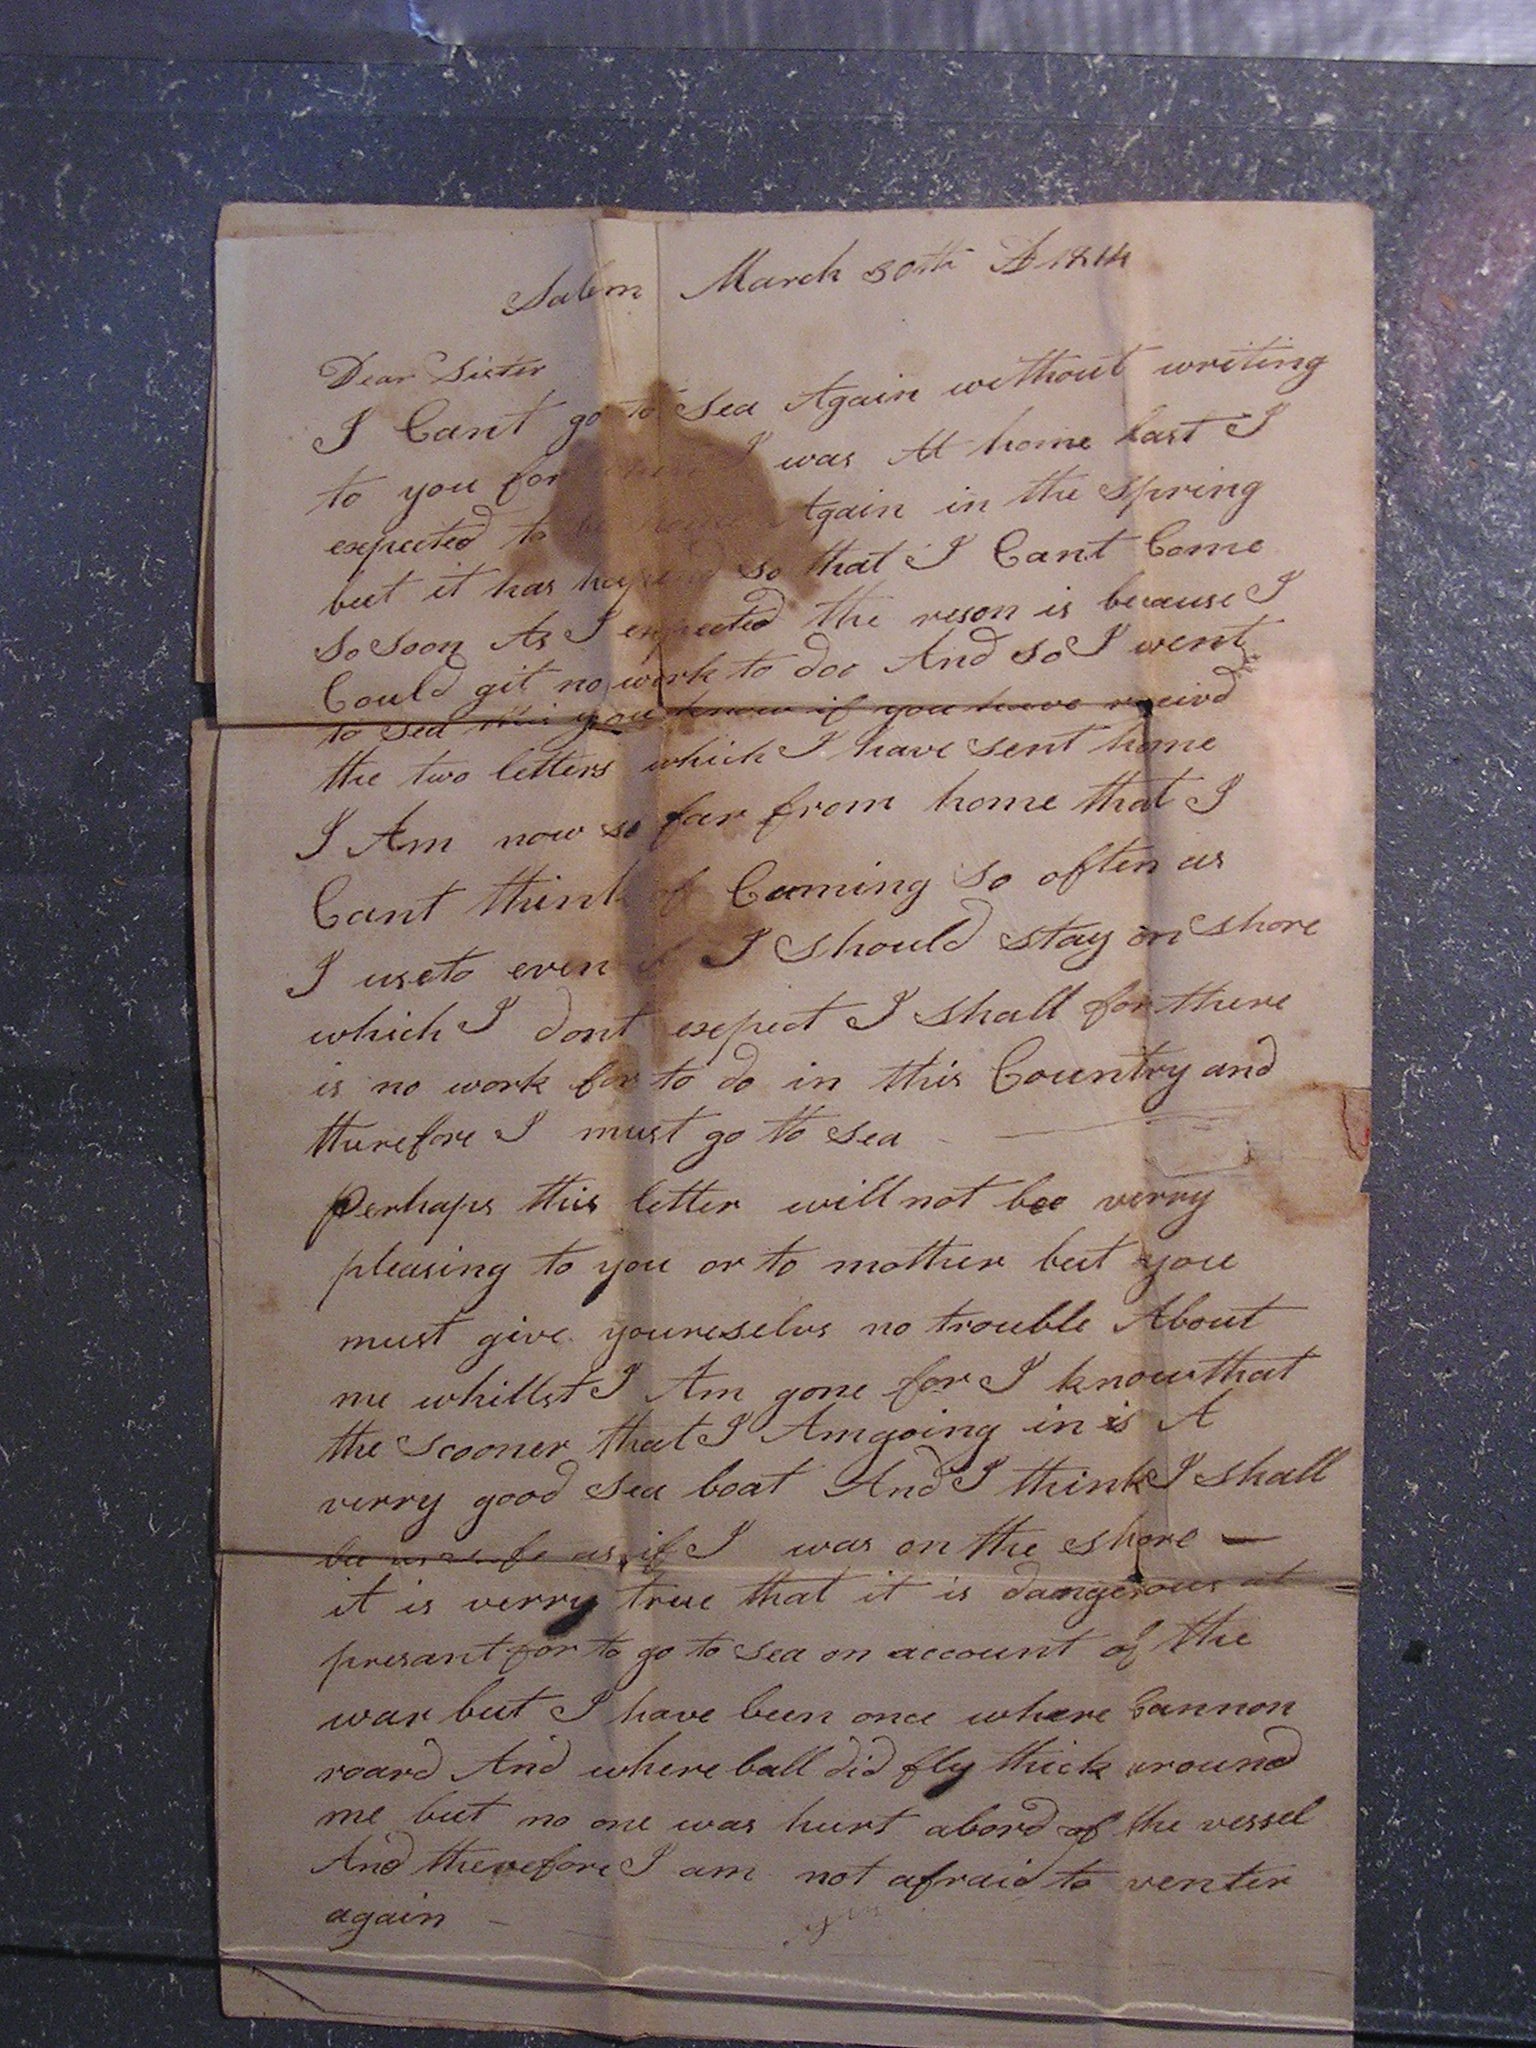 Salem March 30th AD 1814
Dear Sister
I Cant go to sea Again without writing
to you for when I was At home last I
expected to be home Again in the Spring
but it has hapend so that I Cant Come
so soon As I expected the reson is because I
Could git no work to doo And so I went
to sea you know if you have receivd
the two letters which I have sent home
I Am now so far from home that I
Cant think of Comming so often as
I useto even if I should stay on shore
which I dont expect I shall for there
is no work for to do in this Country and
therefore I must go to sea
Perhaps this letter will not bee verry
pleasing to you or to mother but you
must give youreselvs no trouble About
me whillst I Am gone for I know that
the scooner that I Am going in is A
verry good sea boat And I think I shall
be as safe as if I was on the shore —
it is verry true that it is dangerous at
presant for to go to sea on account of the
war but I have been once where Cannon
roard And where ball did fly thick around
me but no one was hurt abord of the vessel
And therefore I am not afraid to venter
again